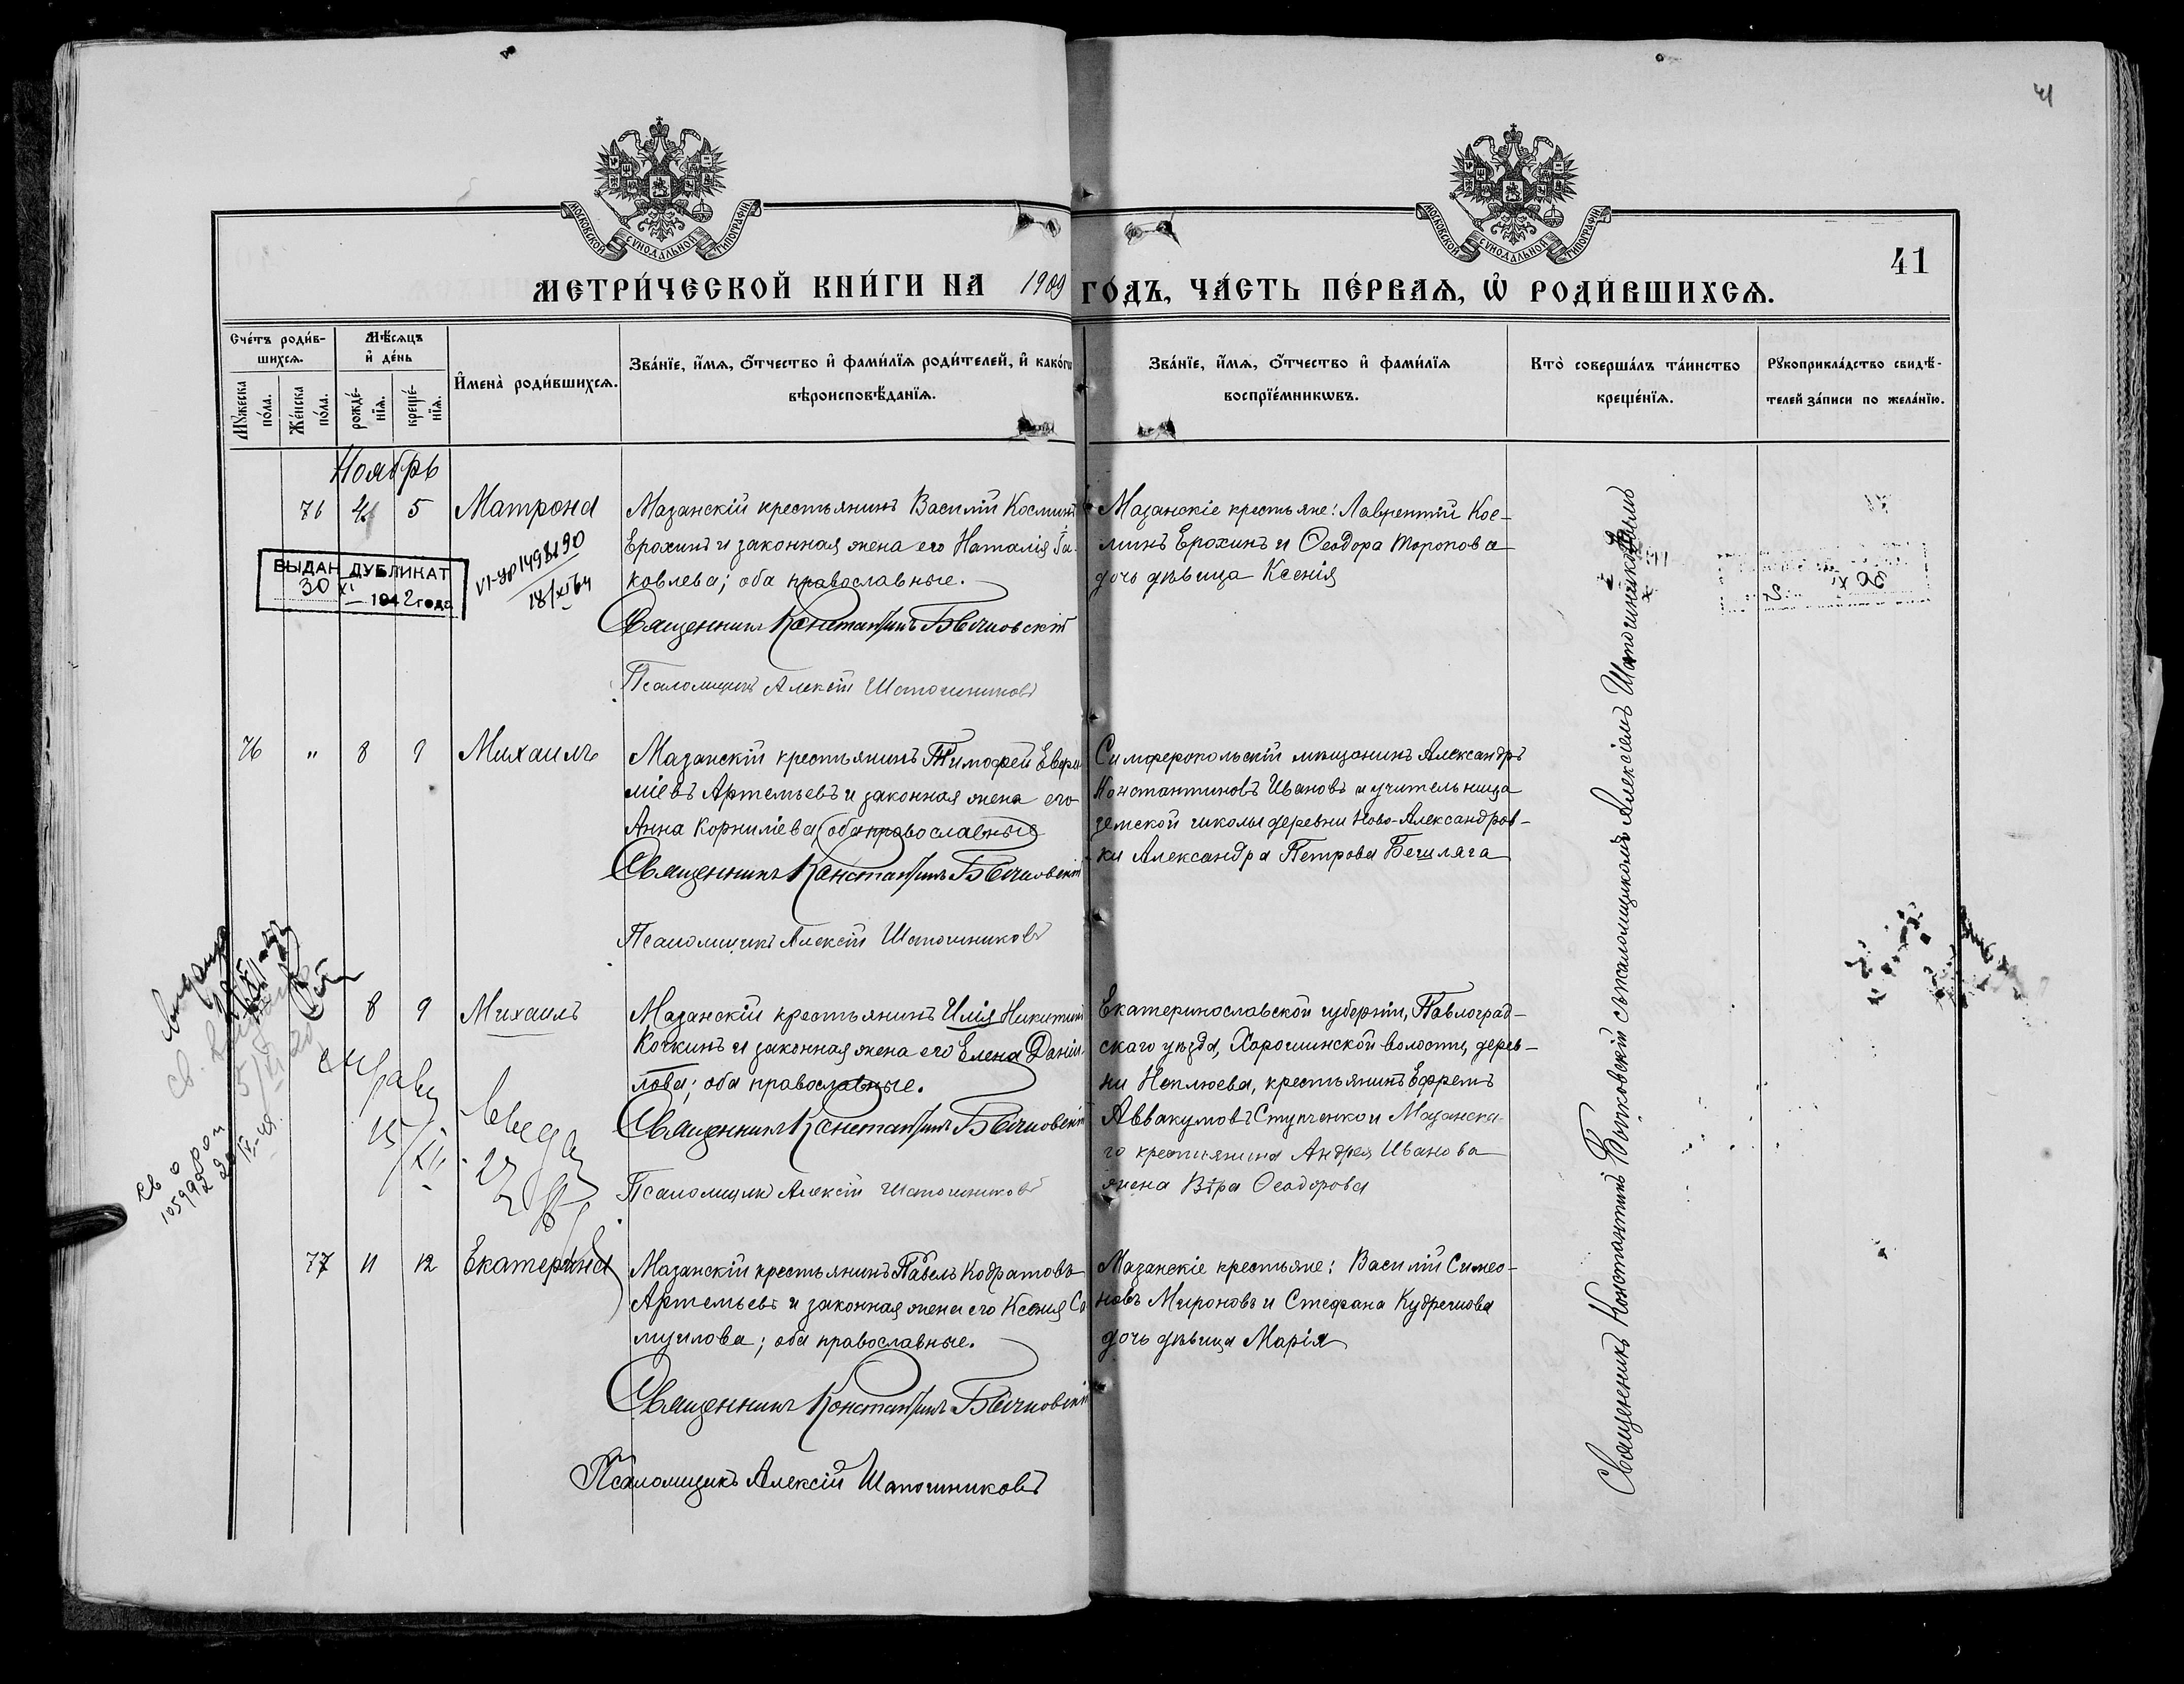 41
МОСКОВСКОЙ СѴНОДАЛЬНОЙ ТИПОГРАФІИ
МОСКОВСКОЙ СѴНОДАЛЬНОЙ ТИПОГРАФІИ
41
МЕТРИ́ЧЕСКОЙ КНИ́ГИ НА 1909 ГО́ДЪ, ЧА́СТЬ ПЕ́РВАѦ, Ѡ҆ РОДИ́ВШИХСѦ.
Сче́тъ роди́в-
шихсѧ.
Мꙋ́жеска по́ла.
Же́нска по́ла.
Мѣ́сѧцъ
и҆ де́нь
рожде́-
нїѧ.
креще́-
нїѧ.
И҆мена̀ роди́вшихсѧ.
Зва́нїе, и҆́мѧ, ѻ҆́тчество и҆ фами́лїѧ роди́телей, и҆ како́гѡ
вѣроисповѣ́данїѧ.
Зва́нїе, и҆́мѧ, ѻ҆́тчество и҆ фами́лїѧ
воспрїе́мникѡвъ.
Кто̀ соверша́лъ та́инство
креще́нїѧ.
Рꙋкоприкла́дство свидѣ́-
телей за́писи по жела́нїю.
Ноябрь
76 4 5 Матрона
Мазанскій крестьянинъ Василій Косминъ
Ерохинъ и законная жена его Наталія Іа-
ковлева; оба православные.
Священникъ Константинъ Бычковскій
Псаломщикъ Алексій Шапошниковъ
Мазанскіе крестьяне: Лаврентій Кос-
минъ Ерохинъ и Ѳеодора Торопова
дочь дѣвица Ксенія
ВЫДАН ДУБЛИКАТ
30 XI 1942 года
18/XI 64
76 " 8 9 Михаилъ
Мазанскій крестьянинъ Тимофей Евфи
міевъ Артемьевъ и законная жена его
Анна Корниліева, оба православные
Священникъ Константинъ Бычковскій
Псаломщикъ Алексій Шапошниковъ
Симферопольскій мѣщанинъ Александръ
Константиновъ Ивановъ и учительница
земской школы деревни Ново-Александров-
ки Александра Петрова Бешляга
8 9 Михаилъ
Мазанскій крестьянинъ Илія Никитинъ
Кочкинъ и законная жена его Елена Даніи-
лова; оба православные.
Священникъ Константинъ Бычковскій
Псаломщикъ Алексій Шапошниковъ
Екатеринославской губерніи, Павлоград-
скаго уѣзда, Хорошинской волости, дерев-
ни Неплюева, крестьянинъ Ефремъ
Аввакумовъ Ступченко и Мазанска-
го крестьянина Андрея Иванова
жена Вѣра Ѳеодорова
77 11 12 Екатерина
Мазанскій крестьянинъ Павелъ Кодратовъ
Артемьевъ и законная жена его Ксенія Са
муилова; оба православные.
Священникъ Константинъ Бычковскій
Псаломщикъ Алексій Шапошниковъ
Мазанскіе крестьяне: Василій Симео-
новъ Мироновъ и Стефана Кудряшова
дочь дѣвица Марія
Священникъ Константинъ Бычковскій съ псаломщикомъ Алексіемъ Шапошниковымъ